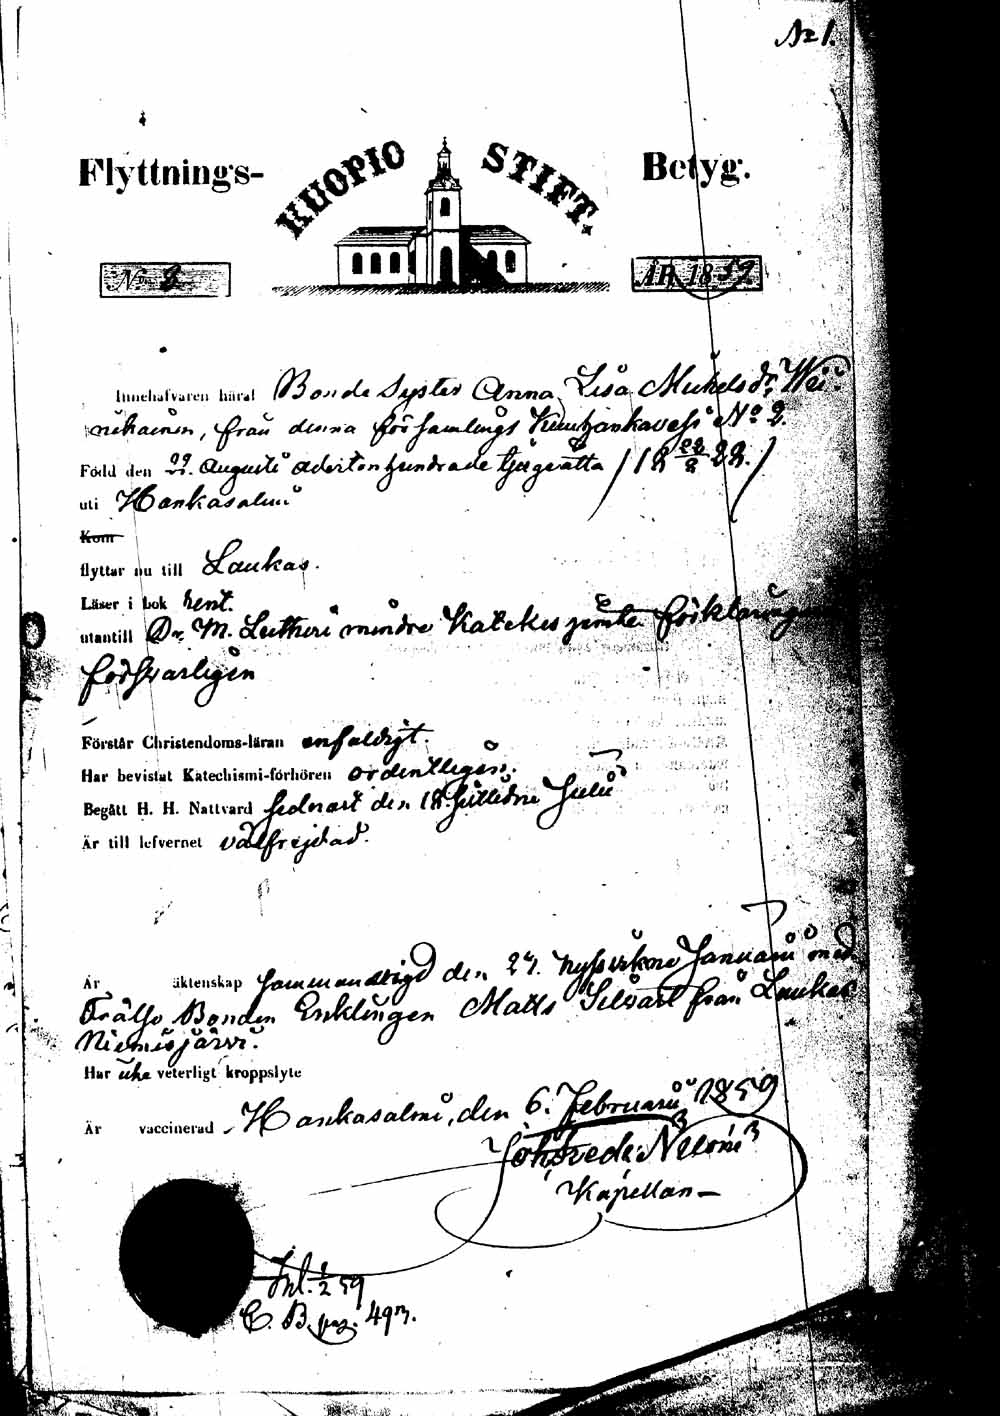 No 1.
Flyttnings- KUOPIO STIFT. Betyg.
No. 8. ÅR 1859.
Innehafvaren häraf Bonde Syster Anna Lisa Mickelsdr Wei-
nikainen, från denna församlings Kuuhankavesi No 2.
Född den 22. Augusti adertonhundrade tjuguåtta / 18 22/8 28. /
uti Hankasalmi
Kom
flyttar nu till Laukas.
Läser i bok rent.
utantill Dr. M. Lutheri mindre Katekes jemte förklaringen
försvarligen
Förstår Christendoms-läran enfaldigt.
Har bevistat Katechismi-förhören ordentligen.
Begått H. H. Nattvard sednast den 18. sistledne Julii
Är till lefvernet välfrejdad.
Är äktenskap sammanvigd den 27. nyssvikne Januarii med
Frälse Bonden Enklingen Matts från Laukas
Niemisjärvi.
Har icke veterligt kroppslyte
Är vaccinerad Hankasalmi, den 6. Februarii 1859
Joh. Fredr.
Kapellan
Inl. 59
C. B. pag. 493.